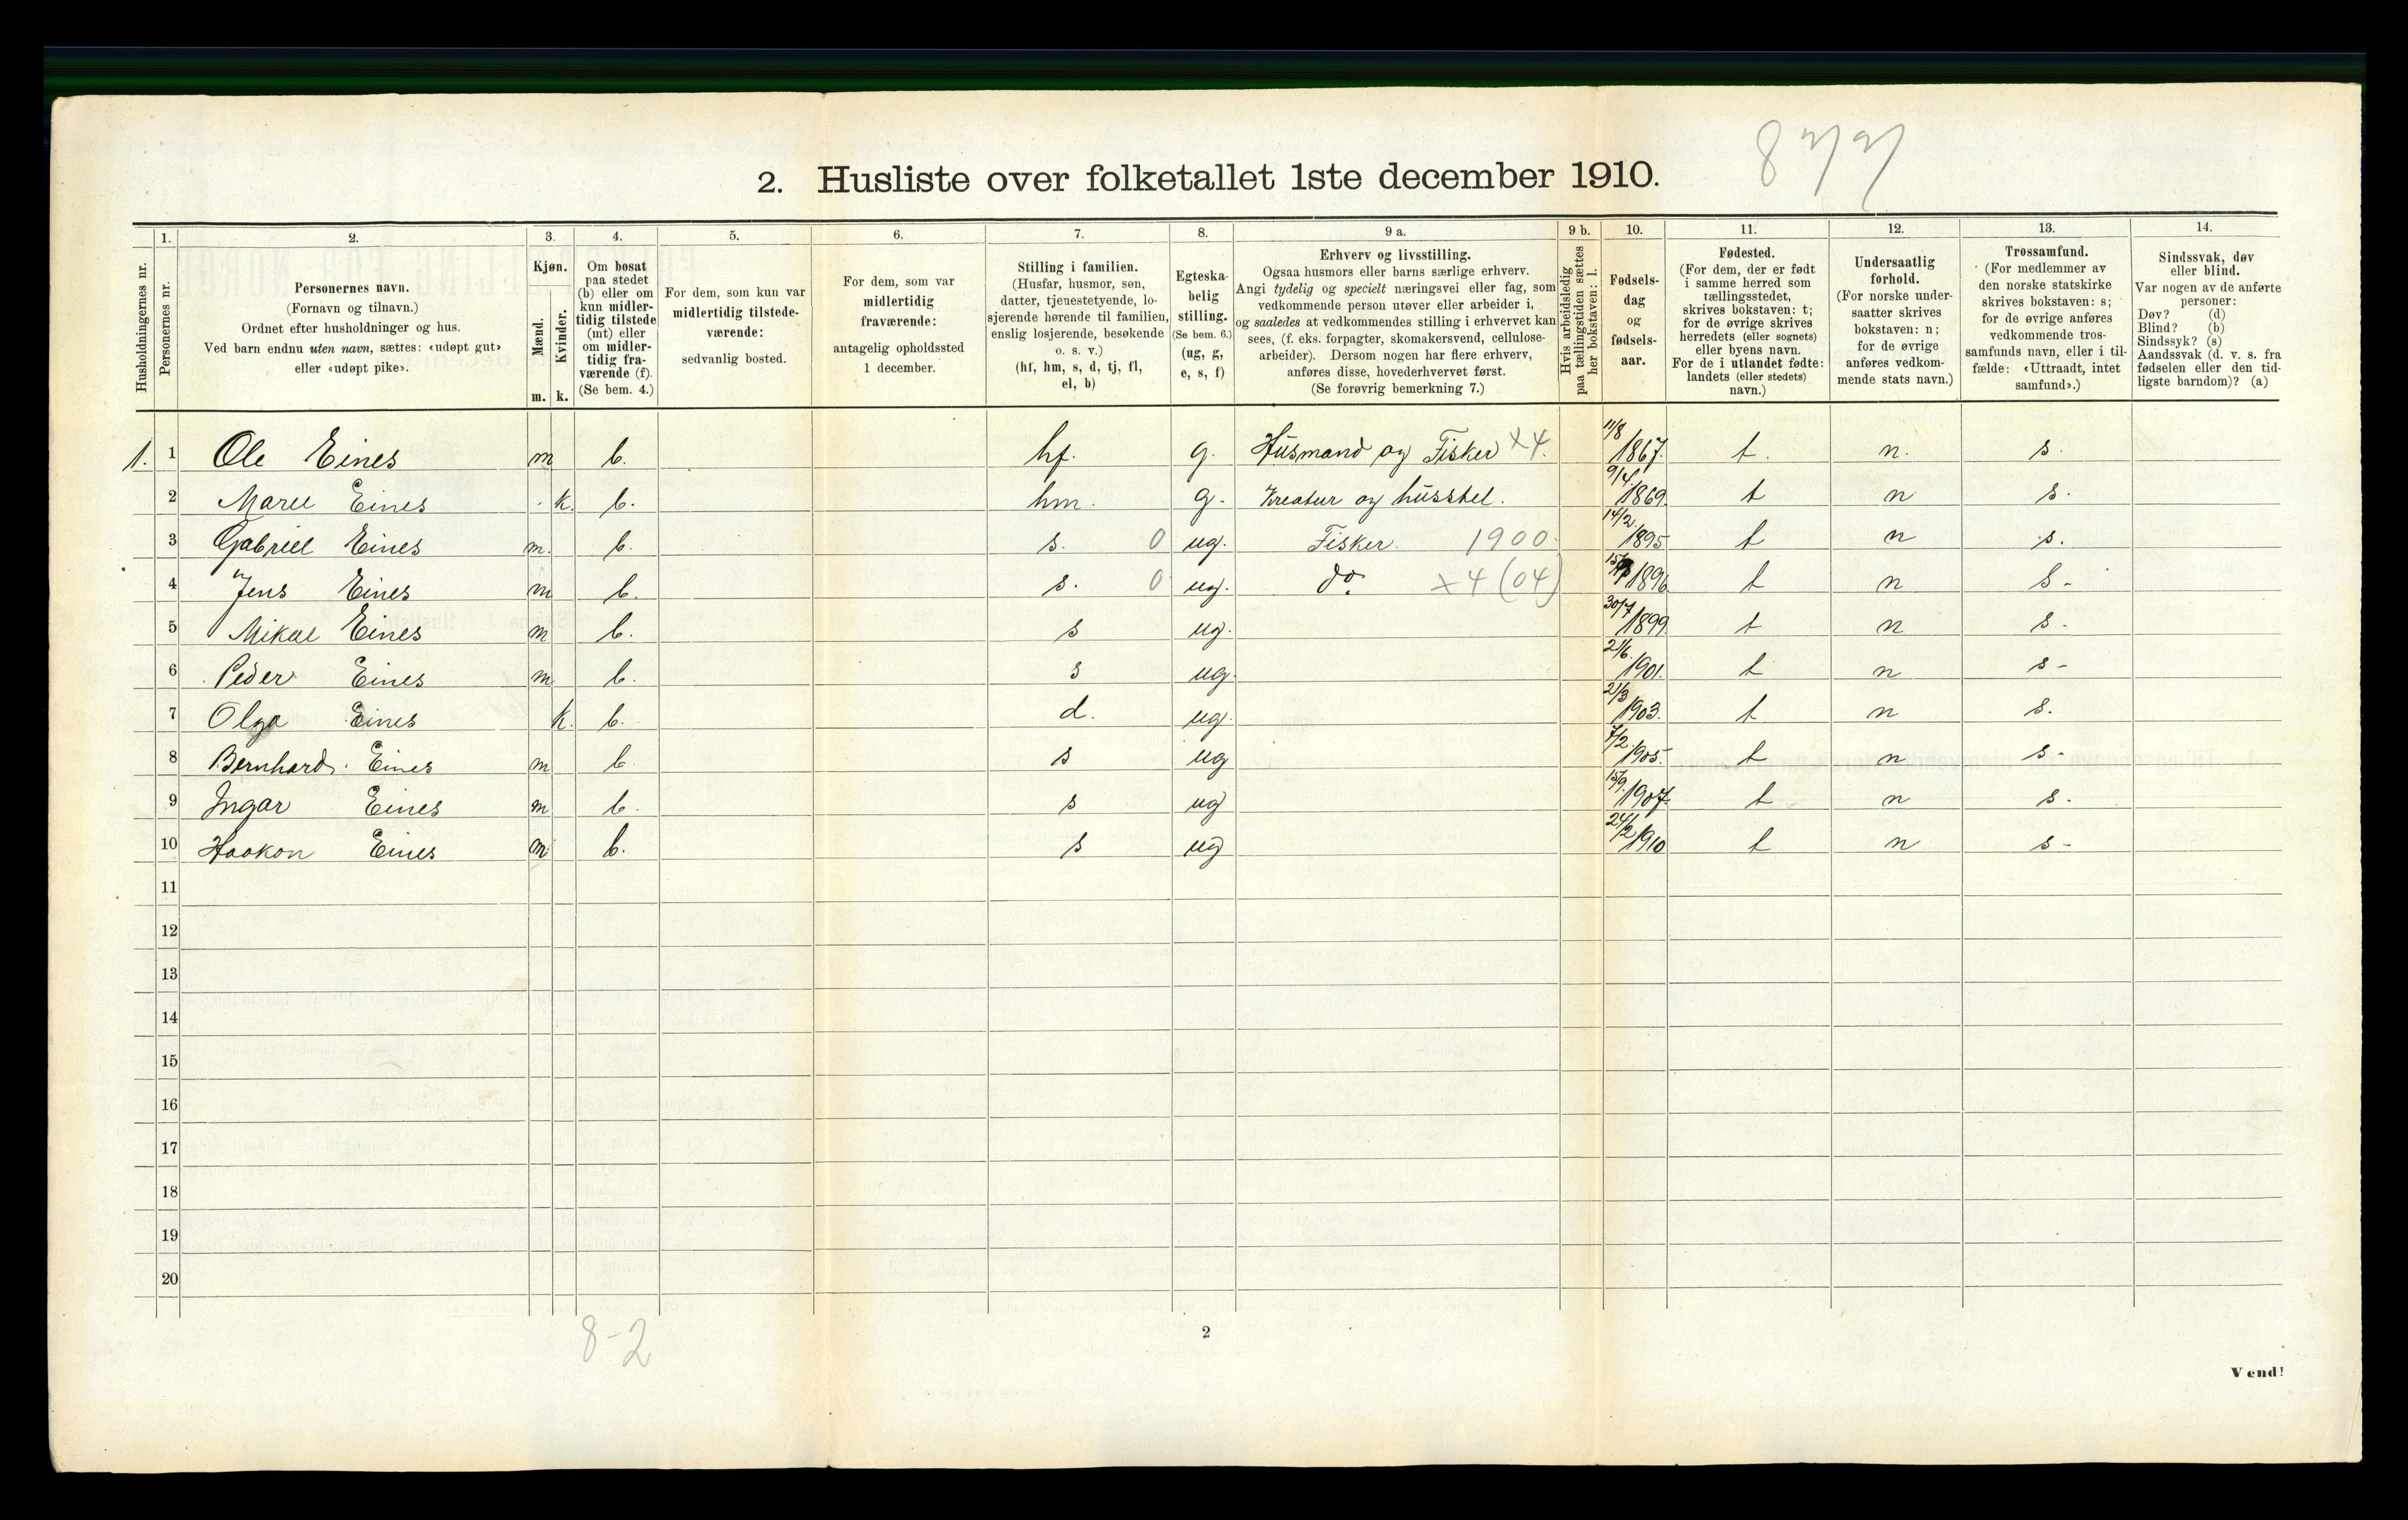 2. Husliste over folketallet 1ste december 1910.
Husholdningernes nr.
1.
Personernes nr.
2.
Personernes navn.
(Fornavn og tilnavn.)
Ordnet efter husholdninger og hus.
Ved barn endnu uten navn, sættes: «udøpt gut»
eller «udøpt pike».
3.
Kjøn.
Mænd.
Kvinder.
m. k.
4.
Om bosat
paa stedet
(b) eller om
kun midler-
tidig tilstede
(mt) eller
om midler-
tidig fra-
værende (f).
(Se bem. 4.)
5.
For dem, som kun var
midlertidig tilstede-
værende:
sedvanlig bosted.
6.
For dem, som var
midlertidig
fraværende:
antagelig opholdssted
1 december.
7.
Stilling i familien.
(Husfar, husmor, søn,
datter, tjenestetyende, lo-
sjerende hørende til familien,
enslig losjerende, besøkende
o. s. v.)
(hf, hm, s, d, tj, fl,
el, b)
8.
Egteska-
belig
stilling.
(Se bem. 6.)
(ug, g,
e, s, f)
9 a.
Erhverv og livsstilling.
Ogsaa husmors eller barns særlige erhverv.
Angi tydelig og specielt næringsvei eller fag, som
vedkommende person utøver eller arbeider i,
og saaledes at vedkommendes stilling i erhvervet kan
sees, (f. eks. forpagter, skomakersvend, cellulose-
arbeider). Dersom nogen har flere erhverv,
anføres disse, hovederhvervet først.
(Se forøvrig bemerkning 7.)
9 b.
Hvis arbeidsledig
paa tællingstiden sættes
her bokstaven: l.
10.
Fødsels-
dag
og
fødsels-
aar.
11.
Fødested.
(For dem, der er født
i samme herred som
tællingsstedet,
skrives bokstaven: t;
for de øvrige skrives
herredets (eller sognets)
eller byens navn.
For de i utlandet fødte:
landets (eller stedets)
navn.)
12.
Undersaatlig
forhold.
(For norske under-
saatter skrives
bokstaven: n;
for de øvrige
anføres vedkom-
mende stats navn.)
13.
Trossamfund.
(For medlemmer av
den norske statskirke
skrives bokstaven: s;
for de øvrige anføres
vedkommende tros-
samfunds navn, eller i til-
fælde: «Uttraadt, intet
samfund».)
14.
Sindssvak, døv
eller blind.
Var nogen av de anførte
personer:
Døv? (d)
Blind? (b)
Sindssyk? (s)
Aandssvak (d. v. s. fra
fødselen eller den tid-
ligste barndom)? (a)
1. 1 Ole Eines m b. hf. g. Husmand og Fisker x4. 11/8 1867. t. n. s.
2 Marie Eines k. b. hm. g. Kreatur og husstel. 9/4. 1869. t n s.
3 Gabriel Eines m. b. s. 0 ug. Fisker. 1900. 14/2. 1895 t n s.
4 Jens Eines m b. s. 0 ug. do. x4 (04) 1896. t n s-
5 Mikal Eines m b. s ug. 30/7 1899. t n s-
6 Peder Eines m b. s ug. 21/6. 1901. t n s-
7 Olga Eines k. b. d. ug. 21/3 1903. t n s.
8 Bernhard Eines m b s ug 7/2. 1905. t n s-
9 Ingar Eines m b. s ug 15/9. 1907. t n s.
10 Haakon Eines m b. s ug 24/2 1910 t n s-
11
12
13
14
15
16
17
18
19
20
8-2
2
Vend!